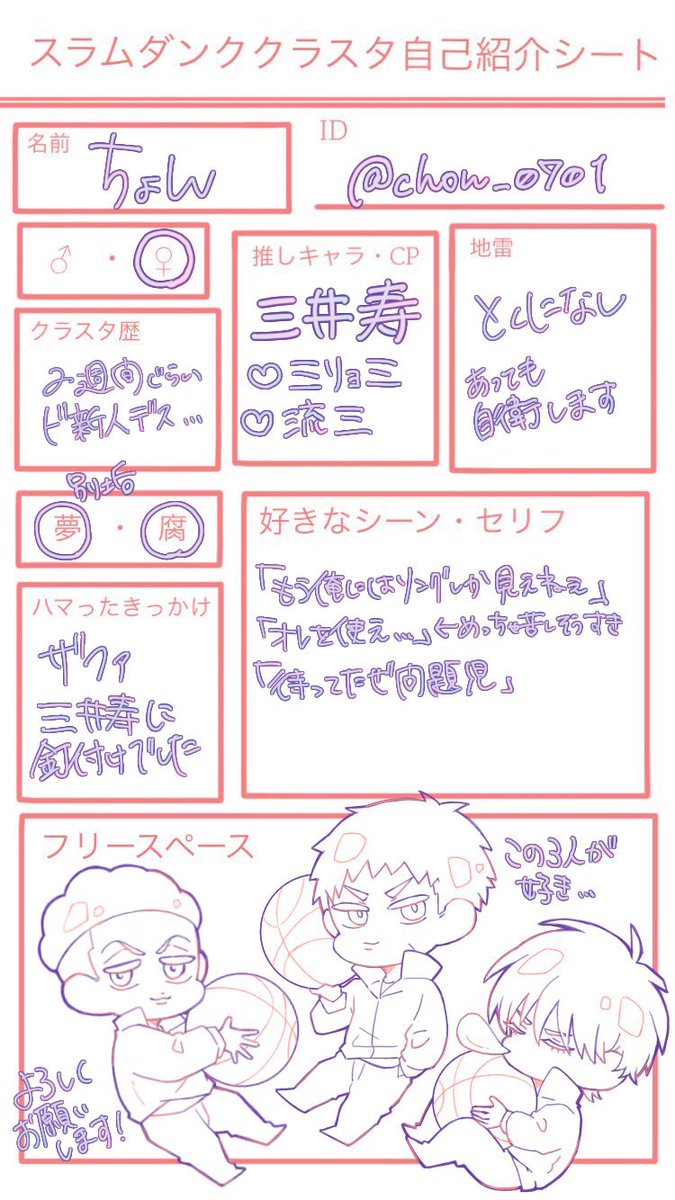 スラムダンククラスタ自己紹介シート
名前
ちょん
ID
@chon_0701
♂・♀
推しキャラ・CP
三井寿
♡三リョ三
♡流三
地雷
とくになし
あっても
自衛します
クラスタ歴
2週間ぐらい
ド新人デス…
別垢
夢・腐
好きなシーン・セリフ
「もう俺にはリングしか見えねえ」
「オレを使え…」←めっちゃ苦しそうすき
「待ってたぜ問題児」
ハマったきっかけ
ザファ
三井寿に
釘付けでした
フリースペース
この3人が
好き…
よろしく
お願い
します!